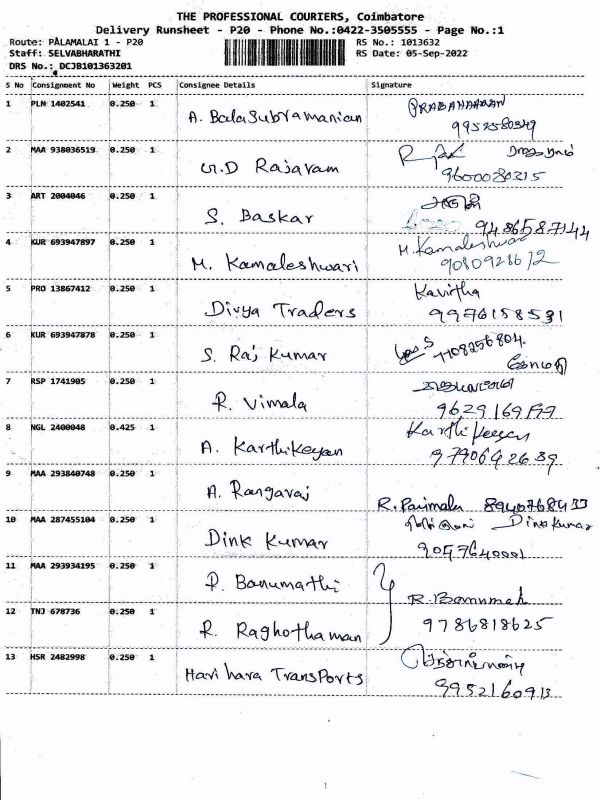 THE PROFESSIONAL COURIERS, Coimbatore
Delivery Runsheet - P20 - Phone No.:0422-3505555 - Page No.:1
Route: PALAMALAI 1 - P20 RS No.: 1013632
Staff: SELVABHARATHI RS Date: 05-Sep-2022
DRS No.: DCJB101363201
S No Consignment No Weight PCS Consignee Details Signature
1 PLN 1402541 0.250 1 A. BalaSubramanian PRABAHARAN
9952580349
2 MAA 938036519 0.250 1 G.D Rajaram
9600080215
3 ART 2004046 0.250 1 S. Baskar
9486587144
4 KUR 693947897 0.250 1 M. Kamaleshwari M. Kamaleshwari
9080928612
5 PRO 13867412 0.250 1 Divya Traders Kavitha
9976158531
6 KUR 693947878 0.250 1 S. Raj Kumar 7708256804
7 RSP 1741905 0.250 1 R. Vimala
9629169
8 NGL 2400048 0.425 1 A. Karthikeyan Karthikeyan
9790642639
9 MAA 293840748 0.250 1 A. Rangaraj
R. Parimala 8940768433
10 MAA 287455104 0.250 1 Dink Kumar Dink Kumar
9057640001
11 MAA 293934195 0.250 1 P. Banumathi
R. Banumath
12 TNJ 678736 0.250 1 R. Raghothaman 9786818625
13 HSR 2482998 0.250 1 Harihara Transports
9952160913
1